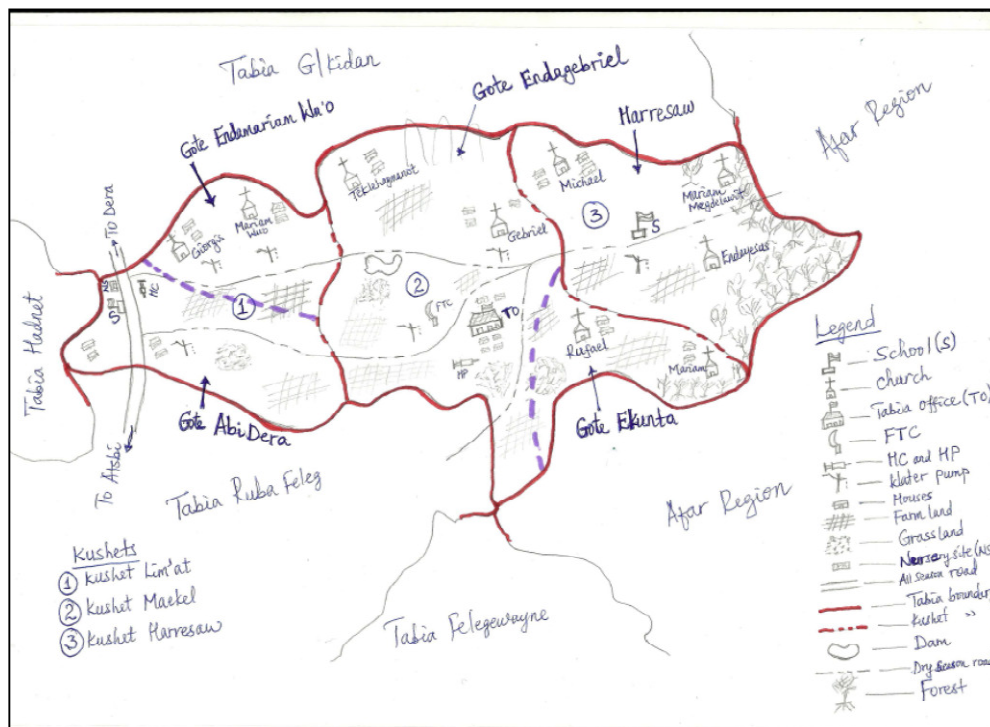 Tabia G/kidan
Gote Endagebriel
Gote Endamariam Wu'o
Harresaw
Afar Region
To Dera
Teklehaymanot
Michael
Mariam Megdelawit
Giorgis
Mariam Wuo
Gebriel
3
S
Enduyesus
NS
HC
2
1
FTC
TO
HP
Rufael
Mariam
Tabia Hadnet
Gote Abi Dera
Gote Ekunta
To Atsbi
Tabia Ruba Feleg
Afar Region
Tabia Felegewayne
Kushets
1 Kushet Lim'at
2 Kushet Maekel
3 Kushet Harresaw
Legend
School(S)
Church
Tabia office (TO)
FTC
HC and HP
Water pump
Houses
Farm land
Grassland
Nursery site (NS
All season road
Tabia boundery
Kushet "
Dam
Dry season road
Forest